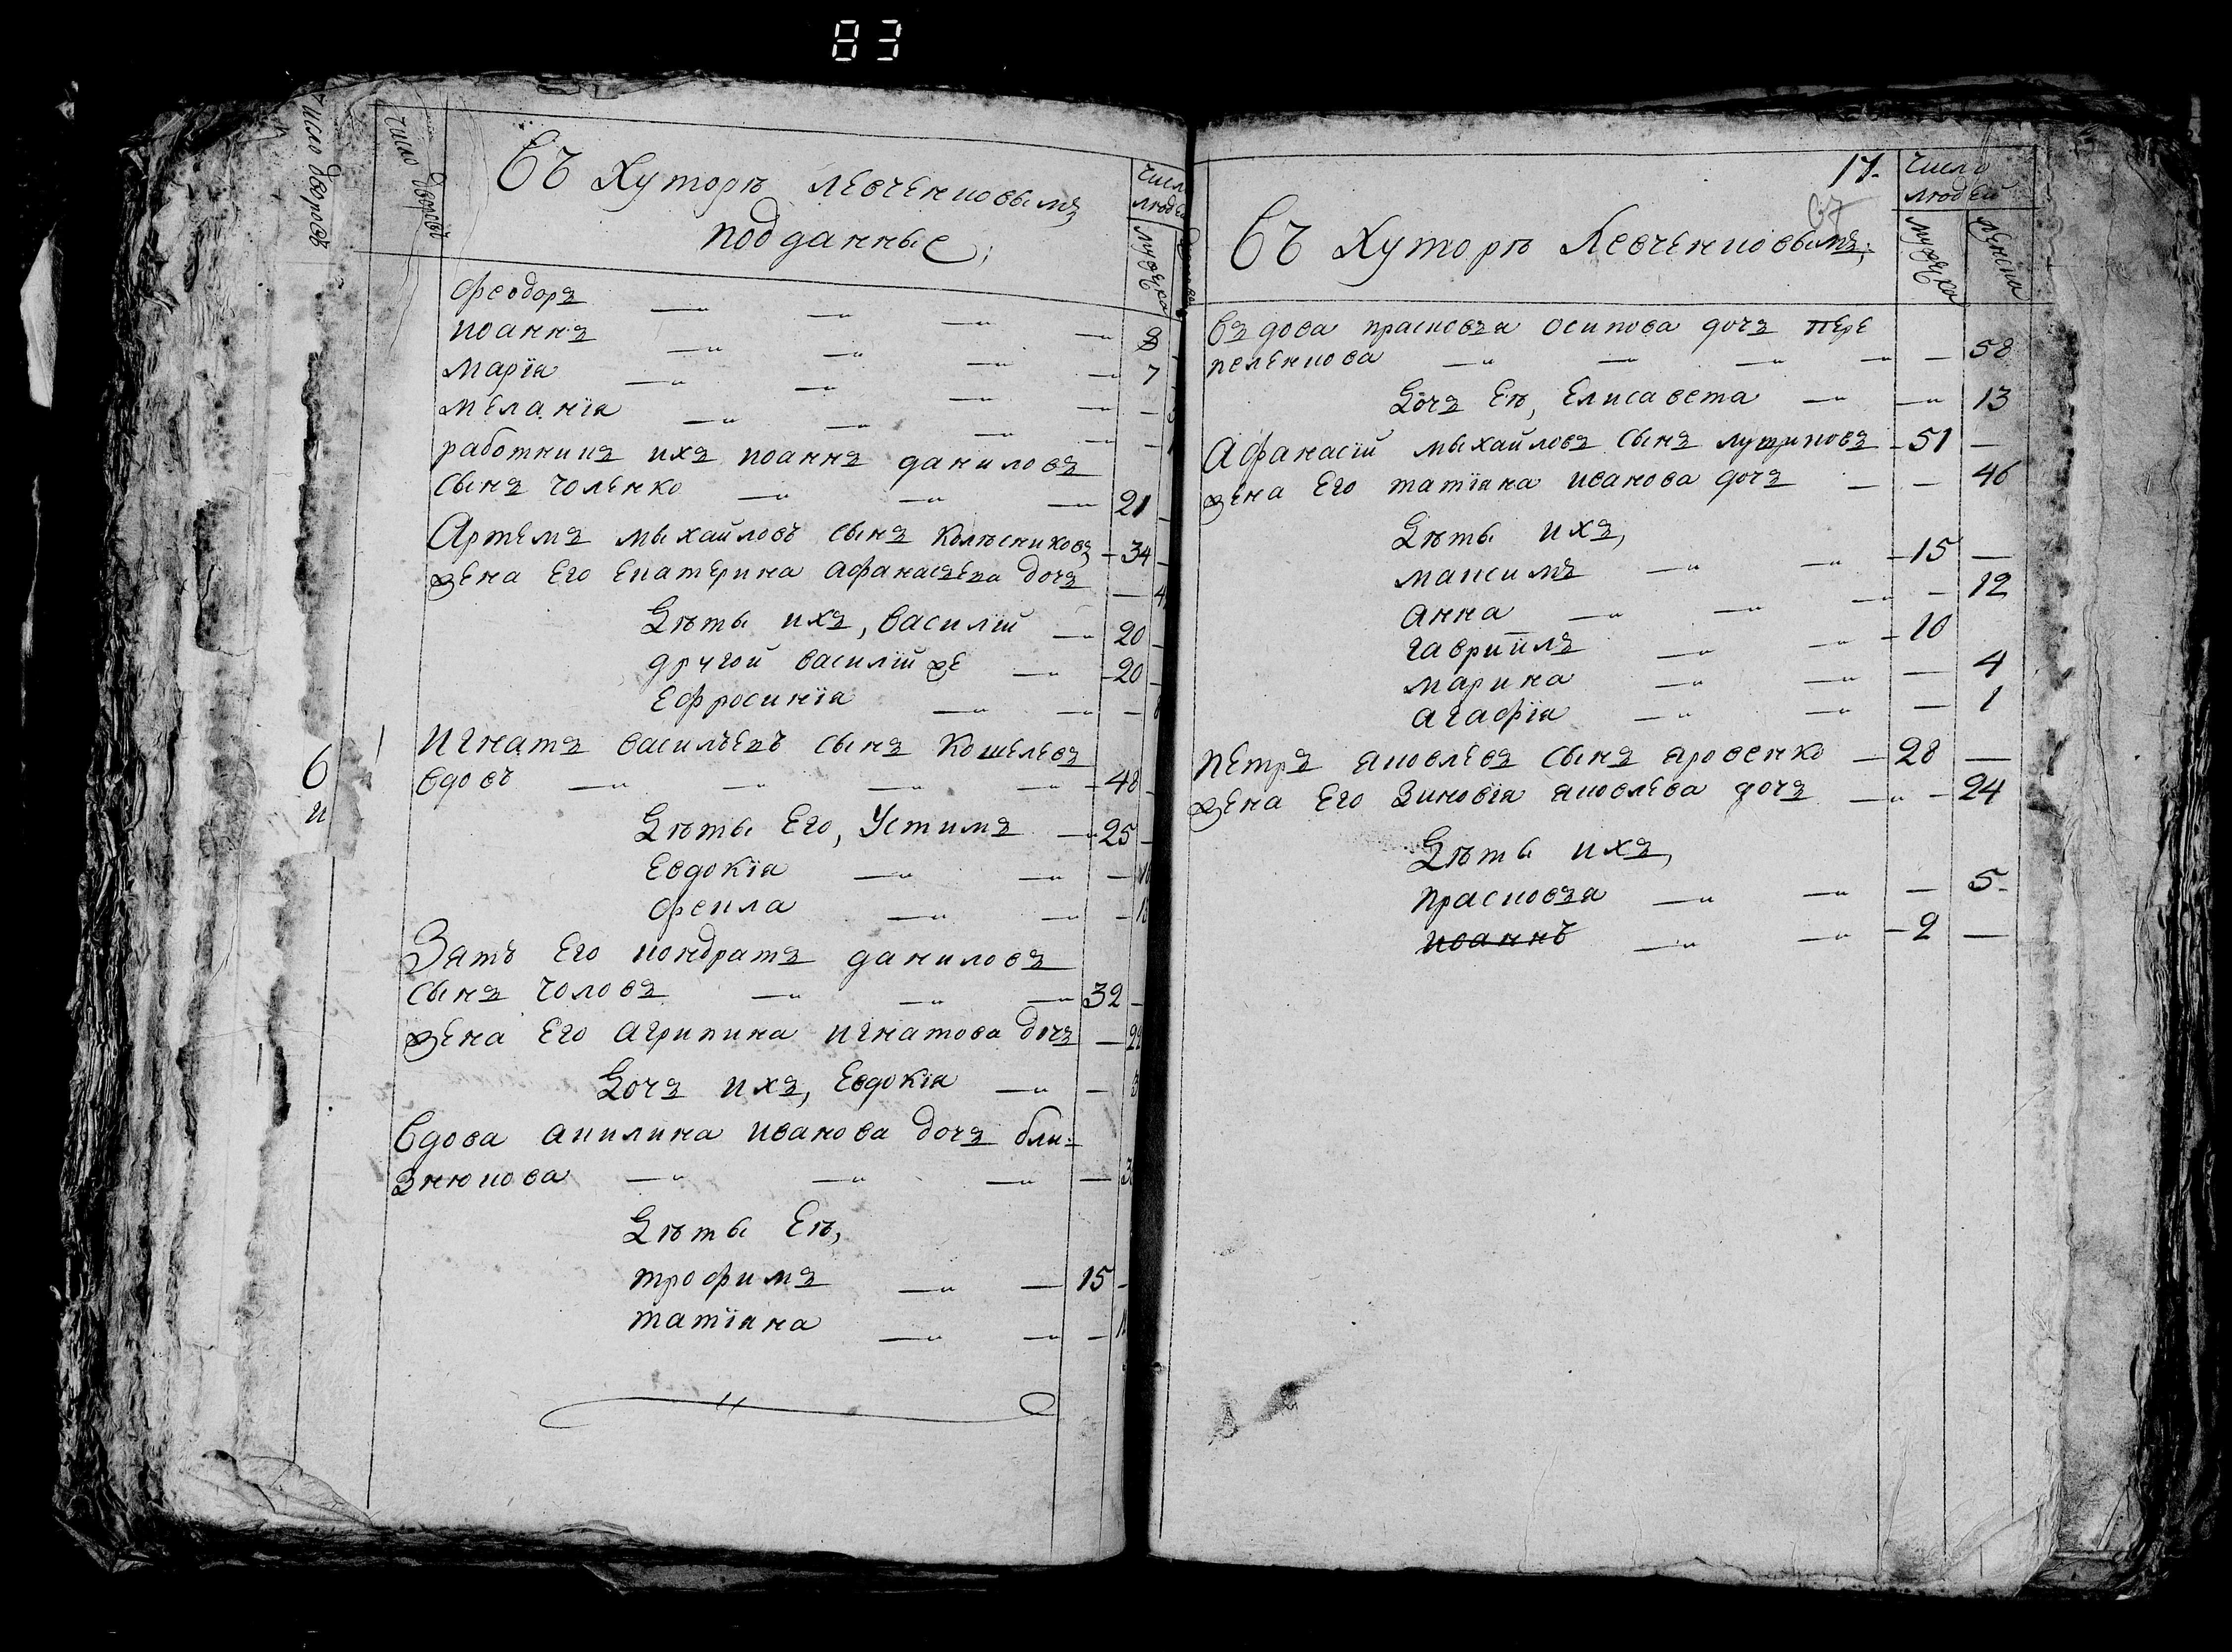 83
число дворовъ
число дворовъ
Въ хуторѣ левченковымъ
подданные;
число
людей
мужеска
Феодоръ — — — — 8
иоаннъ — — — — 7
мариіа — — — —
меланиіа — — — —
работникъ ихъ иоаннъ даниловъ
сынъ чоленко — — — 21
Артемъ мыхайловъ сынъ Колѣсниковъ — 34
жена Его Екатерина афанасьева дочъ —
Дѣты ихъ, василий — 20
другой василий же — 20
Ефросиниіа — — —
6
и
игнатъ васильевъ сынъ Кошелевъ
вдовъ — — — — 48
Дѣты Его, Устимъ — 25
Евдокиіа — — —
Фекла — — —
Зятъ Его кондратъ даниловъ
сынъ чоловъ — — — 32
жена Его агрипина игнатова дочъ — 22
Дочъ ихъ, Евдокиіа — —
Вдова акилина иванова дочъ бли-
знюкова — — — —
Дѣты Еѣ,
трофимъ — — 15
татиіана — — —
17.
67
число
людей
Въ хуторѣ Левченковымъ;
мужеска
женска
Въдова прасковъя осипова дочъ пере
пеленкова — — — — — 58
Дочъ Еѣ, Елисавета — — 13
Афанасий мыхайловъ сынъ лутриковъ — 51 —
жена Его татиіана иванова дочъ — — 46
Дѣты ихъ,
максимъ — — — 15 —
анна — — — — 12
гавриилъ — — — 10
марина — — — 4
агафиіа — — — 1
петръ яковлевъ сынъ яровенко — 28 —
жена Его Зиновиіа яковлева дочъ — — 24
Дѣты ихъ,
прасковъя — — — 5
иоаннъ — — — 2 —